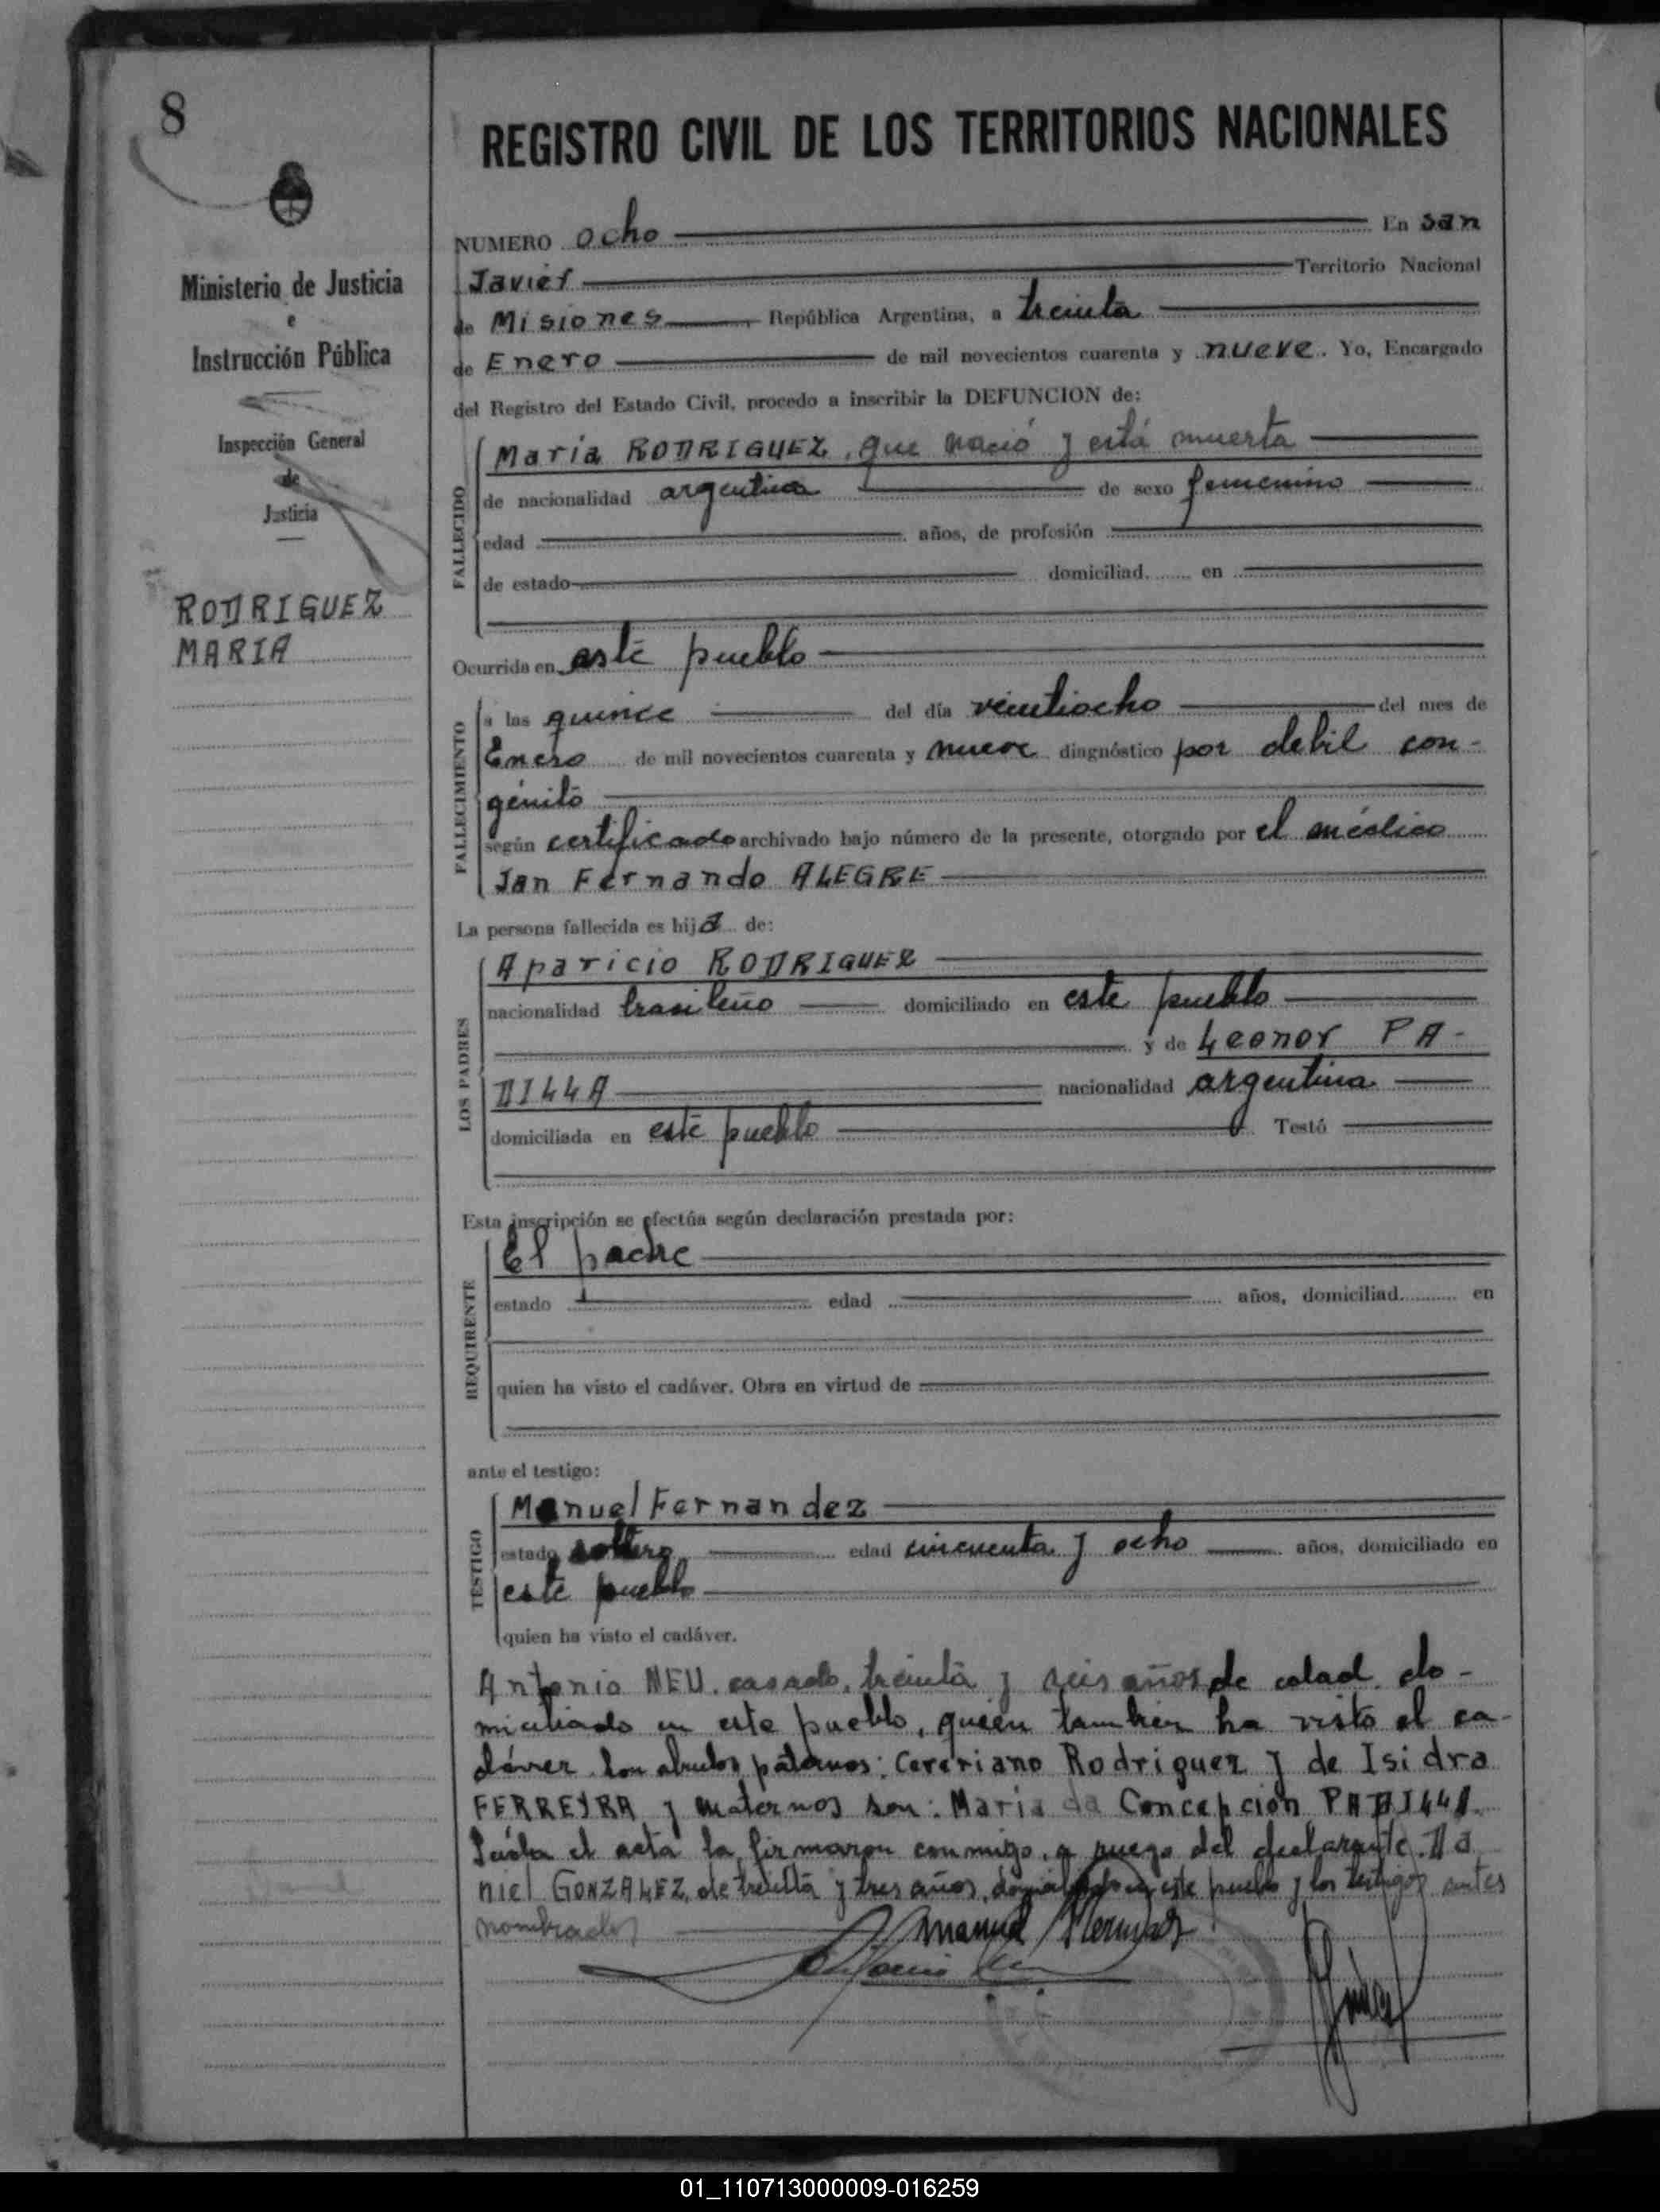 8
Ministerio de Justicia
e
Instrucción Pública
Inspección General
de
Justicia
RODRIGUEZ
MARIA
REGISTRO CIVIL DE LOS TERRITORIOS NACIONALES
NUMERO ocho En San
Javier Territorio Nacional
de Misiones República Argentina, a treinta
de Enero de mil novecientos cuarenta y nueve. Yo, Encargado
del Registro del Estado Civil, procedo a inscribir la DEFUNCION de:
FALLECIDO
María RODRIGUEZ, que nació y está muerta
de nacionalidad argentina de sexo femenino
edad años, de profesión
de estado domiciliad en
Ocurrida en este pueblo
FALLECIMIENTO
a las quince del día veintiocho del mes de
Enero de mil novecientos cuarenta y nueve diagnóstico por debil con-
génito
según certificado archivado bajo número de la presente, otorgado por el médico
Jan Fernando ALEGRE
La persona fallecida es hija de:
LOS PADRES
Aparicio RODRIGUEZ
nacionalidad brasileño domiciliado en este pueblo
y de Leonor PA-
DILLA nacionalidad argentina
domiciliada en este pueblo Testó
Esta inscripción se efectúa según declaración prestada por:
REQUIRENTE
El padre
estado edad años, domiciliad en
quien ha visto el cadáver. Obra en virtud de
ante el testigo:
TESTIGO
Manuel Fernandez
estado soltero edad cincuenta y ocho años, domiciliado en
este pueblo
quien ha visto el cadáver.
Antonio NEU. casado, treinta y seis años de edad, do-
miciliado en este pueblo, quien tambien ha visto el ca-
dáver. Son abuelos paternos: Cereriano Rodriguez y de Isidra
FERREYRA y maternos son: María da Concepción PADILLA.
Leída el acta la firmaron conmigo, a ruego del declarante. Da
niel GONZALEZ, de treinta y tres años, domiciliado en este pueblo y los testigos antes
nombrados
Manuel
01_110713000009-016259